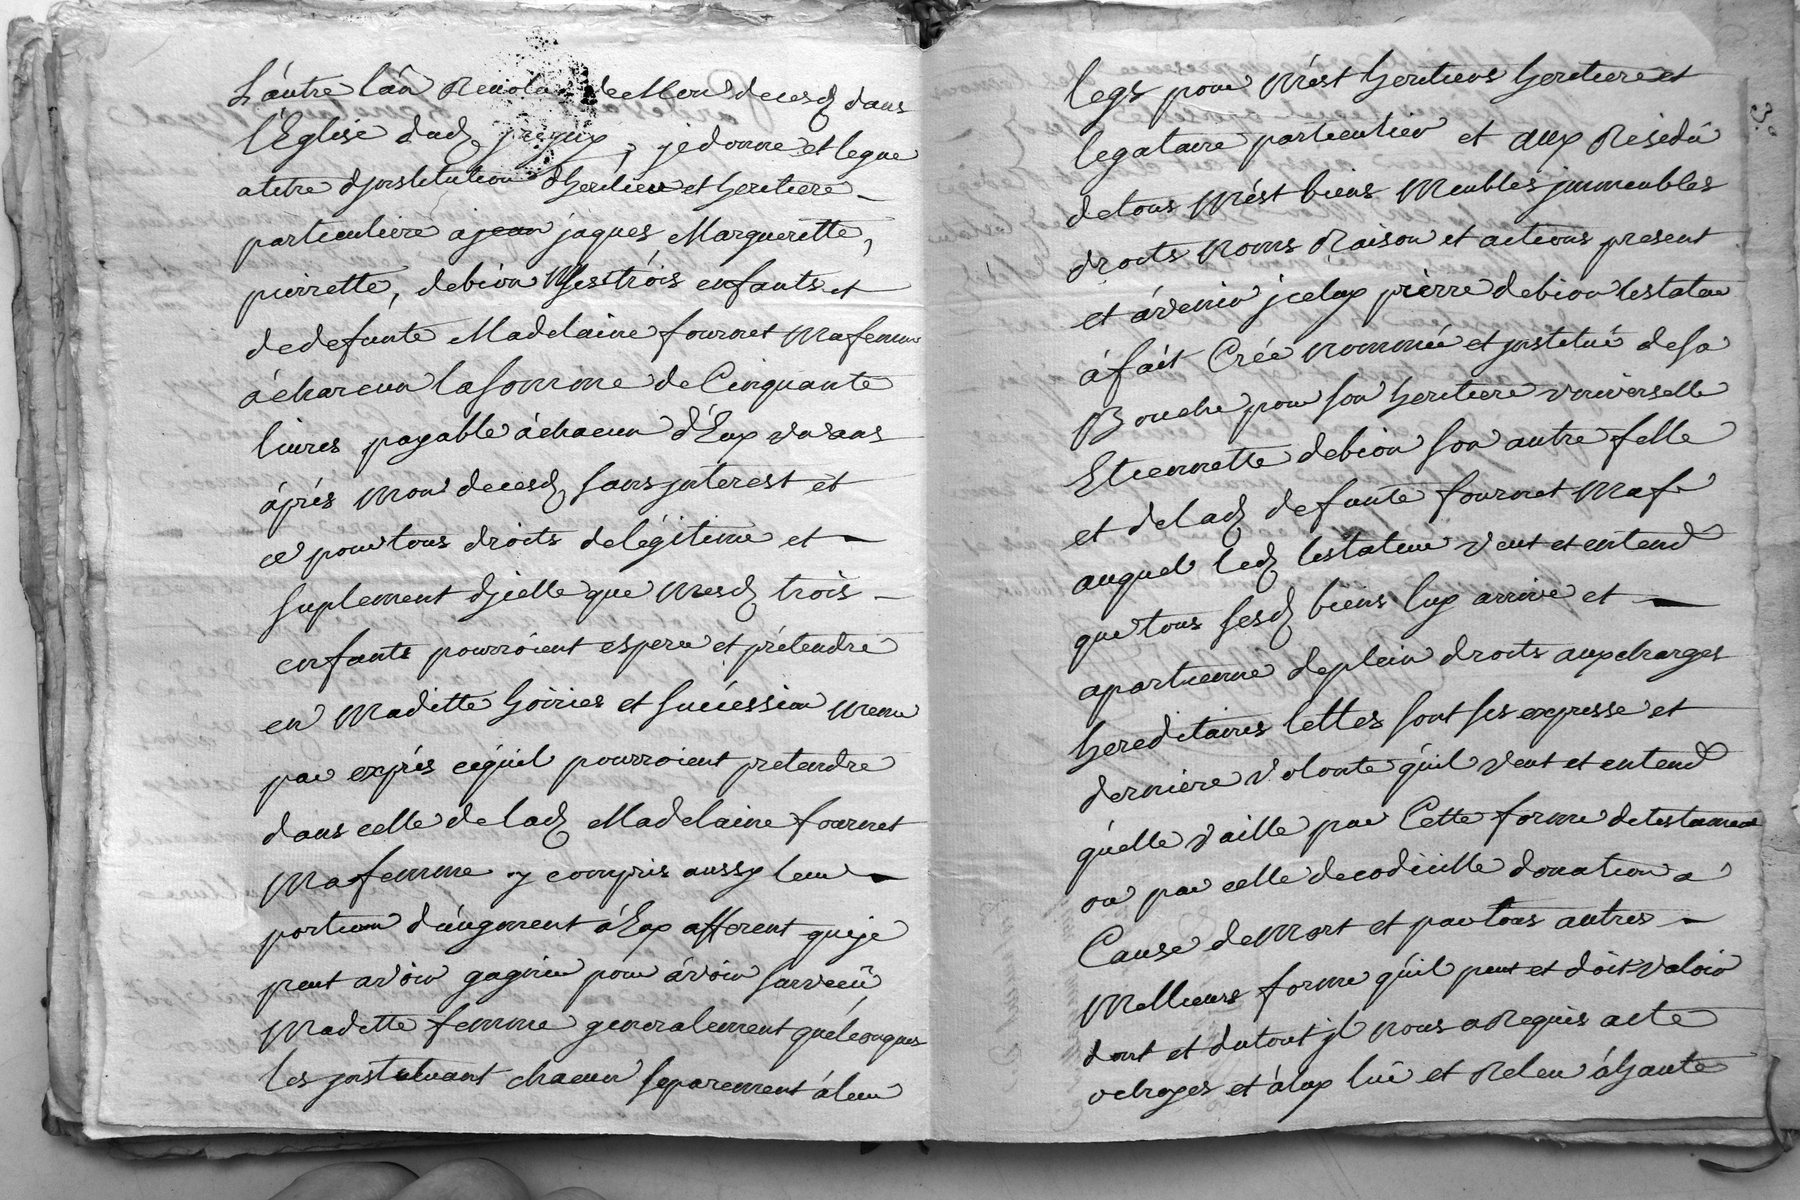 L'autre l'an Revolu de Mon decesd dans
l'Eglise dud , je donne et legue
a titre d'jnstitution d'heritier et heritiere
particuliere a jean jaques Marguerette,
pierrette, debion Mes trois enfants et
de defunte Madelaine fournet Ma femme
à chacun la somme de Cinquante
livres payable à chacun d'Eux un ans
áprés Mon decesd sans jnterest et
ce pour tous droits de légitime et
suplement d'jcelle que Mesd trois
enfants pourroient esperer et prétendre
en Maditte hoiries et succéssion Meme
par exprés ce qu'il pourroient pretendre
dans celle de lad Madelaine fournet
Ma femme y compris aussy leur
portion d'augment á Eux afferent que je
peut avoir gagnée pour ávoir surveçû
Maditte femme generalement quélconques
les jnstituant chacun separement á leur
legs pour Mést heritiers heritiere et
legataire particulier et aux Résidû
de tous Mést biens Meubles jmmeubles
droits Noms Raison et actions present
et ávenir jceluy pierre debion testateur
á fait Crée nommée et jnstitué de sa
Bouche pour son heritiere universelle
Etiennette debion son autre felle
et de lad defunte fournet Ma f
auquel led testateur veut et entend
que tous sesd biens luy arrive et
apartienne de plein droits aux charges
hereditaires lettes sont ses expresse et
derniere volonte qu'il veut et entend
qu'elle vaille par Cette forme de testament
ou par celle de codicille donation a
Cause de Mort et par tous autres
Mellieurs forme qu'il peut et doit valoir
dont et du tout jl nous a Requis acte
octroyes et á luy lû et Releu á haute
3.